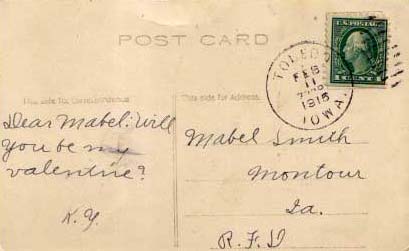 POST CARD
U.S. POSTAGE
1 CENT 1
TOLEDO
FEB
11
1915
IOWA.
This side for Correspondence
This side for Address.
Dear Mabel: Will
you be my
valentine?
K. Y.
Mabel Smith
Montour
Ia.
R. F. D